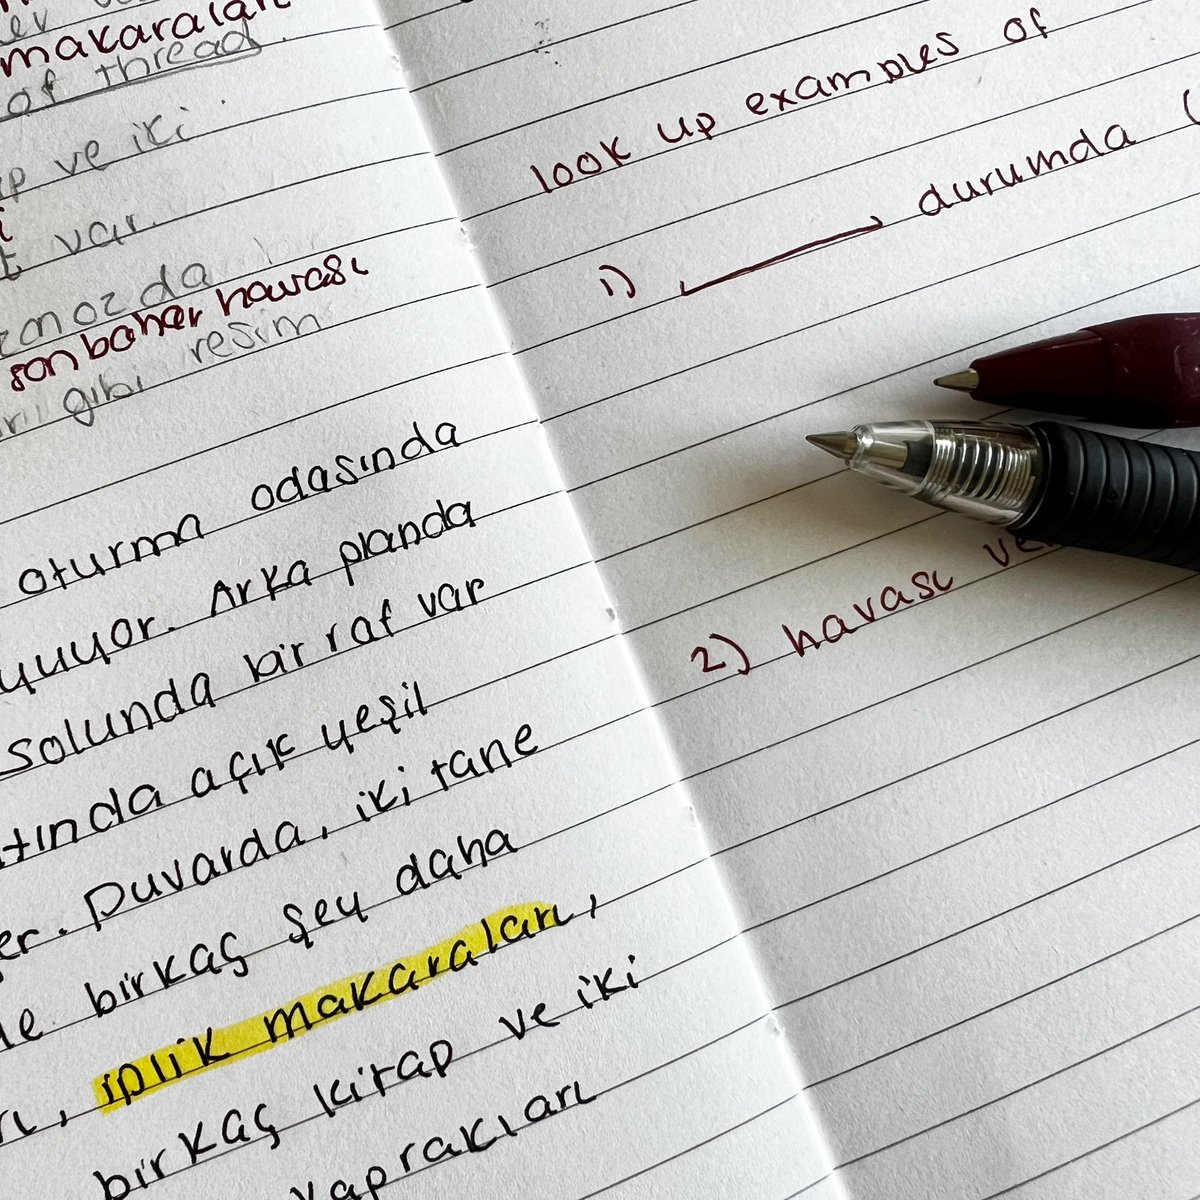 makaraları
of thread.
ve iki
var.
sonbahar havası
gibi resim
oturma odasında
uyuyor. Arka planda
solunda bir raf var
altında açık yeşil
er. Duvarda, iki tane
de birkaç şey daha
rı, iplik makaraları,
birkaç kitap ve iki
yaprakları
look up examples of
1) durumda (
2) havası ve